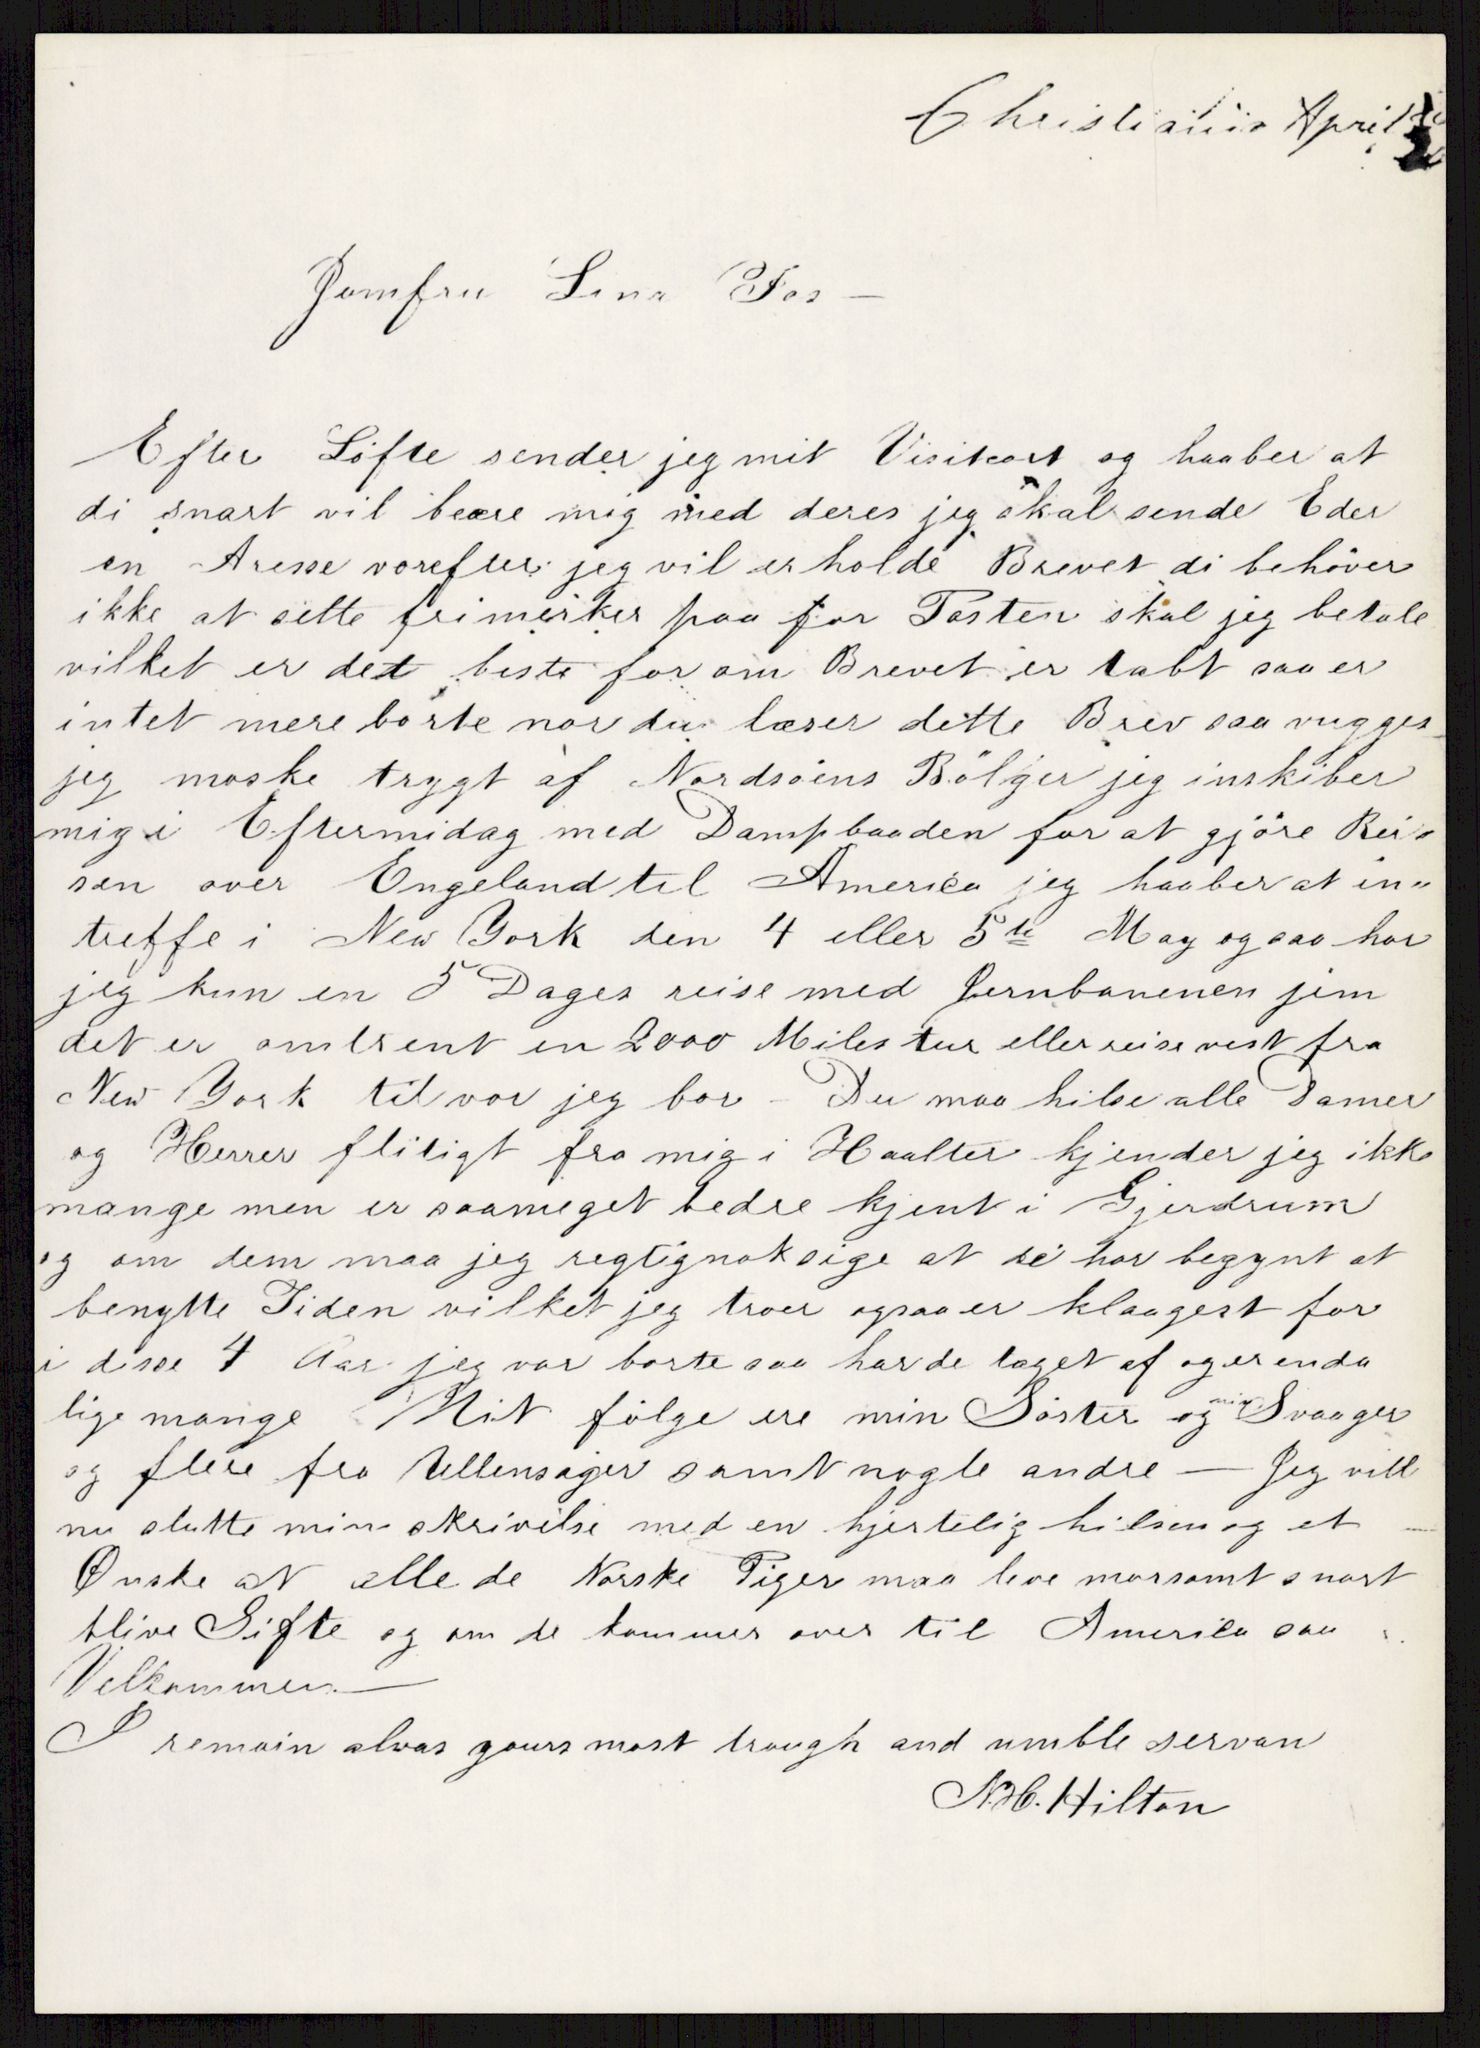 Christiania April
Jomfru Lina Fos —
Efter Löfte sender jeg mit Visitcort og haaber at
di snart vil beære mig med deres jeg skal sende Eder
en Aresse vorefter jeg vil erholde Brevet di behöver
ikke at sette frimerker paa for Posten skal jeg betale
vilket er det beste for om Brevet er tabt saa er
intet mere borte nor du læser dette Brev saa vugges
jeg maske trygt af Nordsöens Bölger jeg inskiber
mig i Eftermidag med Dampbaaden for at gjöre Rei-
sen over Engeland til America jeg haaber at in-
treffe i New York den 4 eller 5te May og saa har
jeg kun en 5 Dages reise med Jernbanenen jem
det er omtrent en 2000 Miles tur eller reise vest fra
New York til vor jeg bor - Du maa hilse alle Damer
og Herrer flitigt fra mig i Haalter kjender jeg ikke
mange men er saameget bedre kjent i Gjerdrum
og om dem maa jeg regtignok sige at de har begynt at
benytte Tiden vilket jeg troer ogsaa er klaagest for
i disse 4 Aar jeg var borte saa har de taget af og er enda
lige mange Mit fölge ere min Söster og min Svaager
og flere fra Ullensager samt nogle andre — Jeg vill
nu slutte min skrivelse med en hjertelig hilsen og et
Önske at alle de Norske Piger maa leve morsomt snart
blive Gifte og om de kommer over til America saa
Velkommen —
I remain alvas yours most trough and umble servan
N. H. Hilton